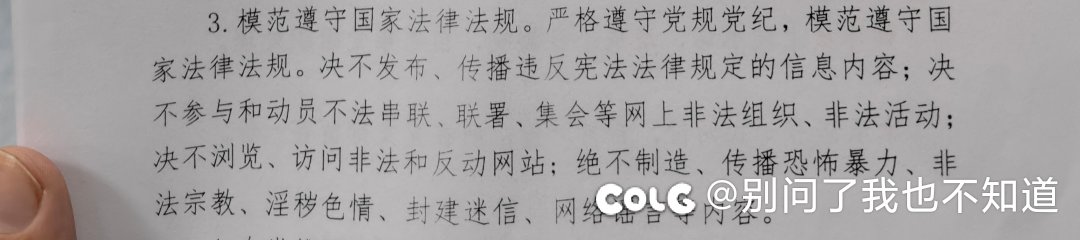 3.模范遵守国家法律法规。严格遵守党规党纪，模范遵守国
家法律法规。决不发布、传播违反宪法法律规定的信息内容；决
不参与和动员不法串联、联署、集会等网上非法组织、非法活动；
决不浏览、访问非法和反动网站；绝不制造、传播恐怖暴力、非
法宗教、淫秽色情、封建迷信、网络谣言等内容。
COLG @别问了我也不知道